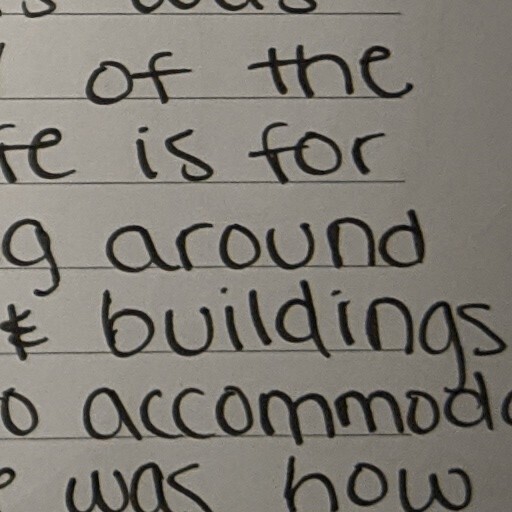 of the
is for
g around
& buildings
accommod
was how